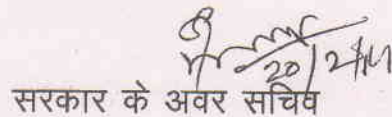 20/2/14
सरकार के अवर सचिव